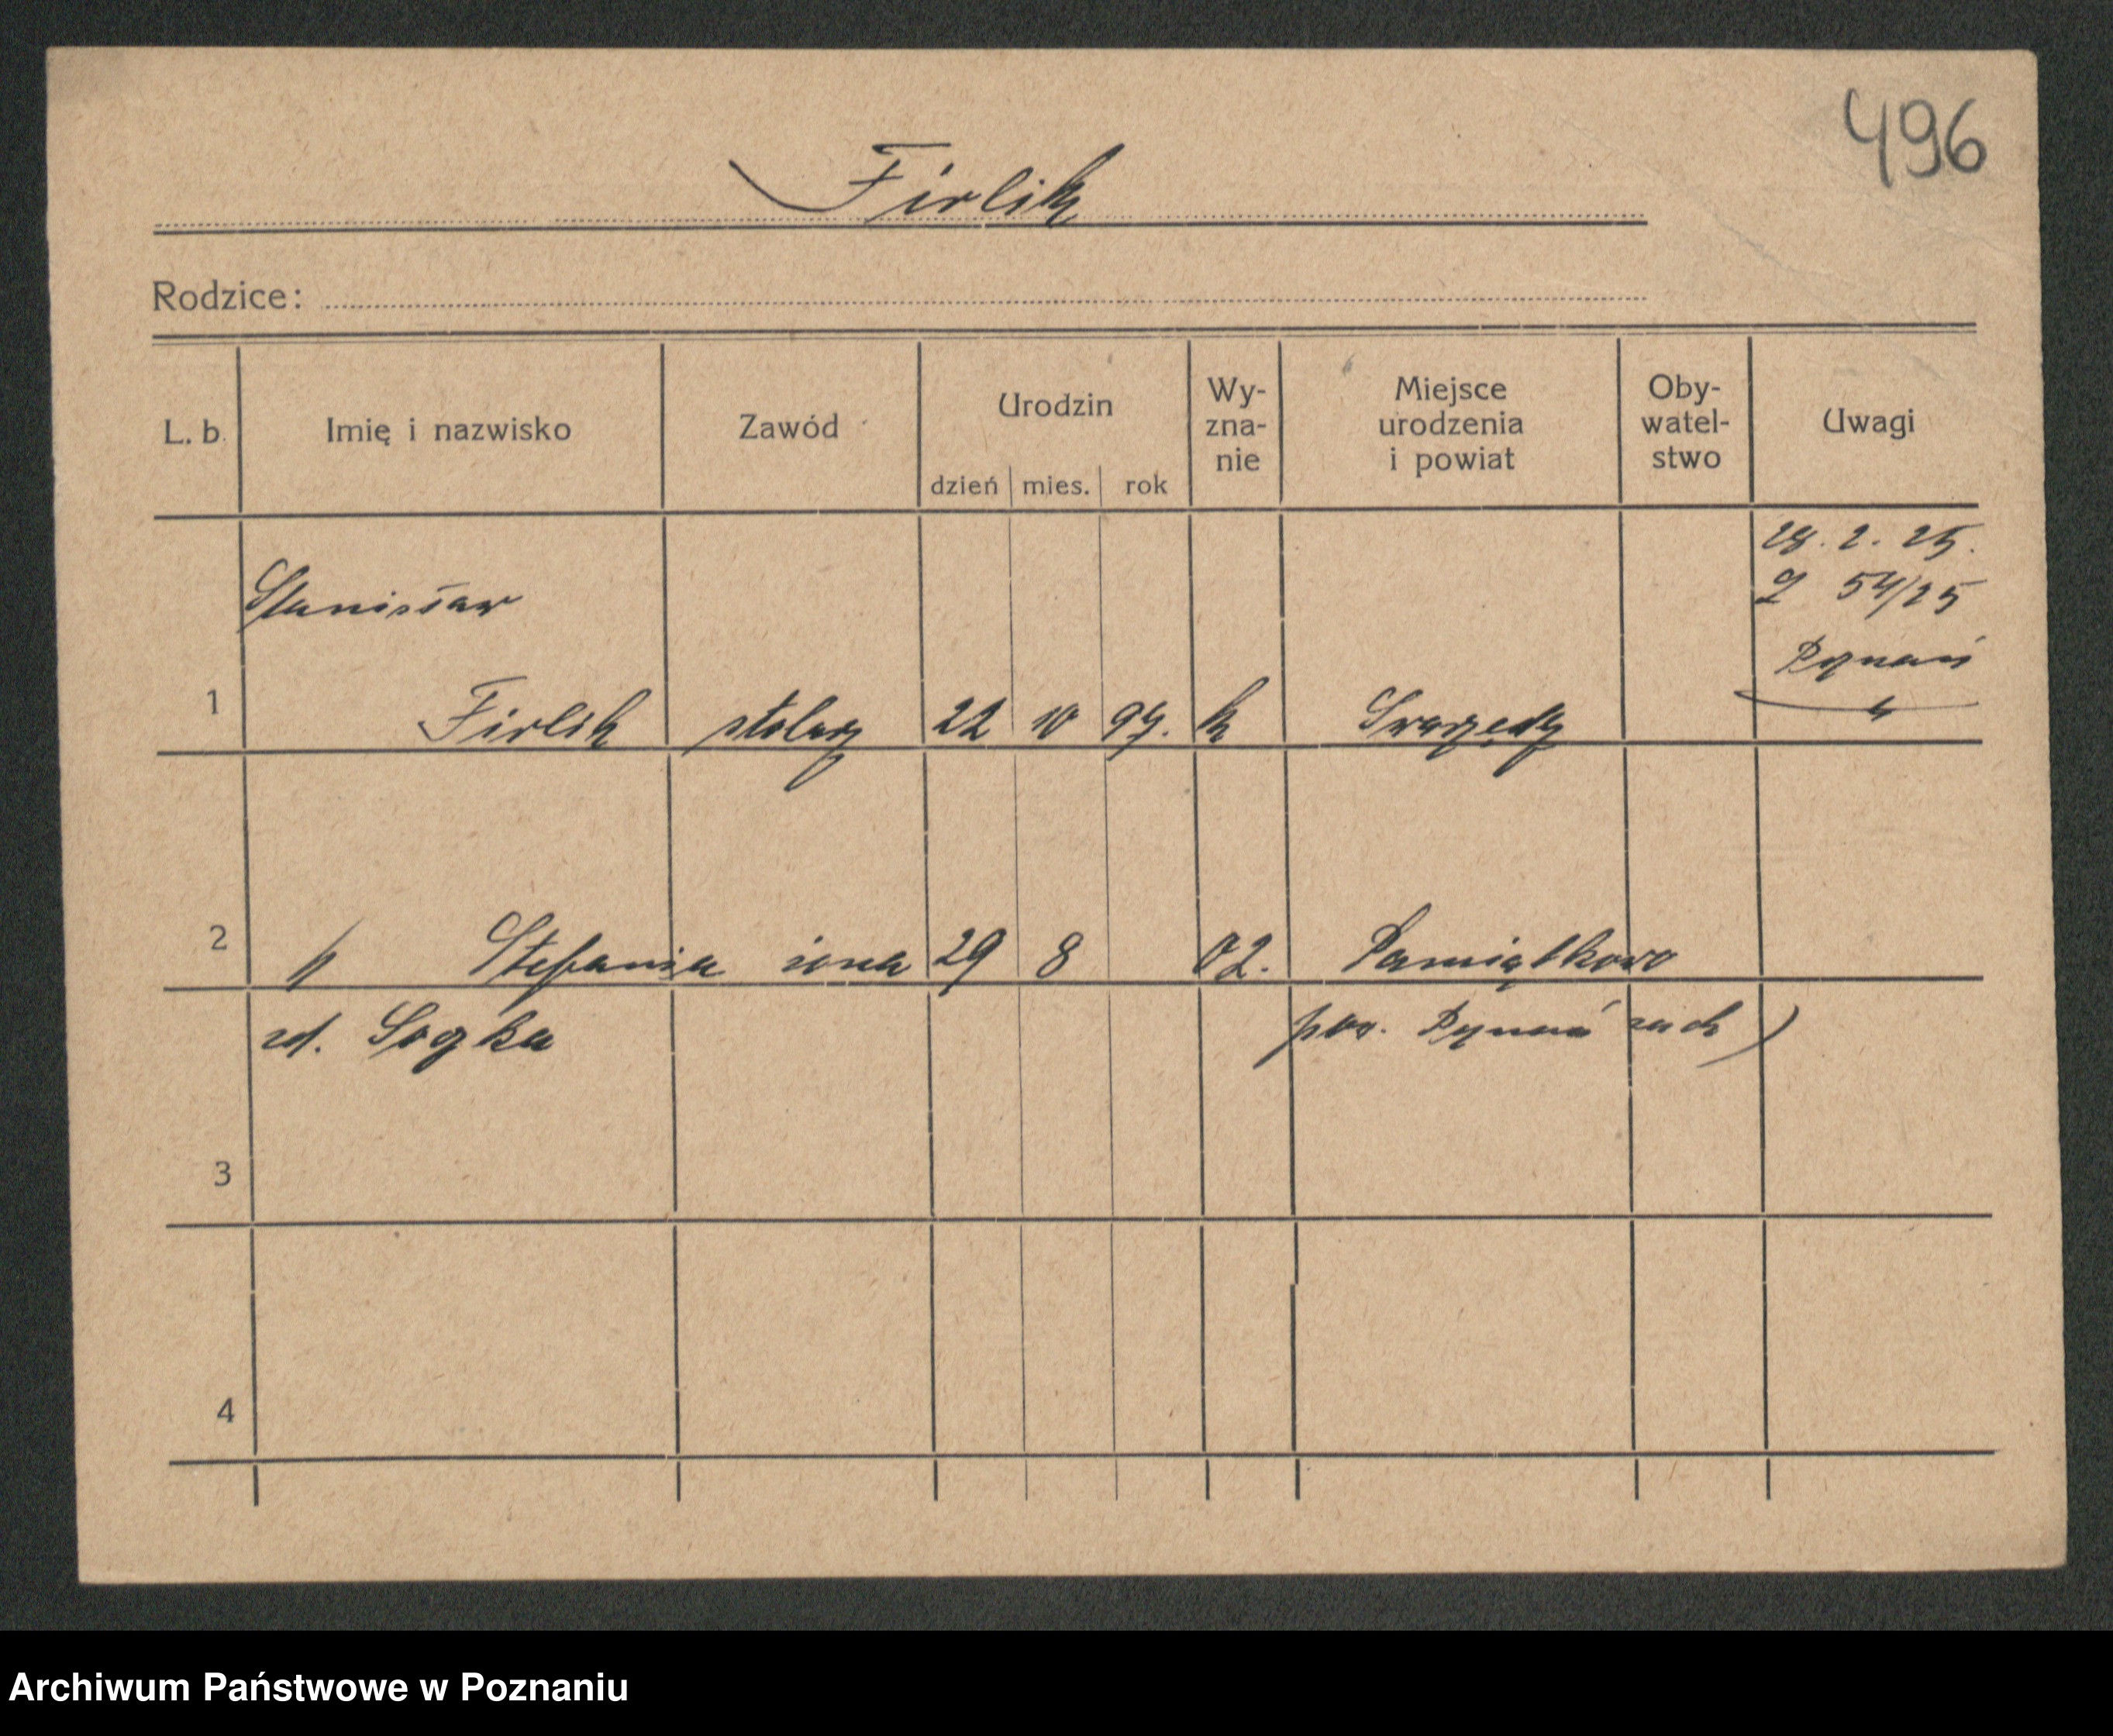 496
Firlik
Rodzice:
L. b. Imię i nazwisko Zawód Urodzin dzień mies. rok Wy-zna-nie Miejsce urodzenia i powiat Oby-watel-stwo Uwagi
28. 2. 25.
54/25
Poznań
Stanisław
1 Firlik stolarz 22 10 97. k Swarzędz
2 " Stefania żona 29 8 02. Pamiątkowo
pow. Poznań zach)
3
4
Archiwum Państwowe w Poznaniu